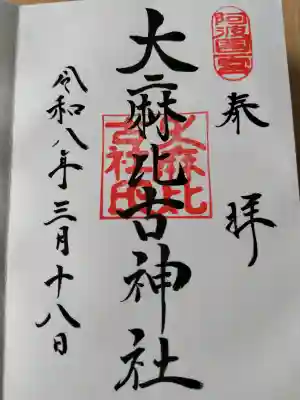 阿波國一宮
奉拝
大麻比古神社
大麻比古社印
令和八年三月十八日